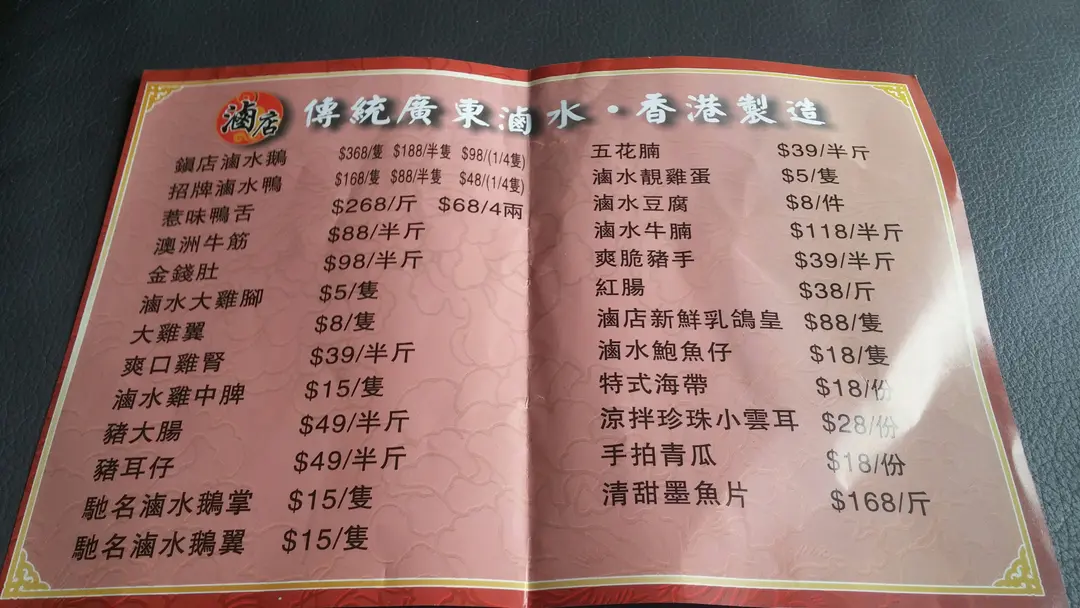 滷店
傳統廣東滷水·香港製造
鎭店滷水鵝 $368/隻 $188/半隻 $98/(1/4隻)
招牌滷水鴨 $168/隻 $88/半隻 $48/(1/4隻)
惹味鴨舌 $268/斤 $68/4兩
澳洲牛筋 $88/半斤
金錢肚 $98/半斤
滷水大雞腳 $5/隻
大雞翼 $8/隻
爽口雞腎 $39/半斤
滷水雞中脾 $15/隻
豬大腸 $49/半斤
豬耳仔 $49/半斤
馳名滷水鵝掌 $15/隻
馳名滷水鵝翼 $15/隻
五花腩 $39/半斤
滷水靚雞蛋 $5/隻
滷水豆腐 $8/件
滷水牛腩 $118/半斤
爽脆豬手 $39/半斤
紅腸 $38/斤
滷店新鮮乳鴿皇 $88/隻
滷水鮑魚仔 $18/隻
特式海帶 $18/份
涼拌珍珠小雲耳 $28/份
手拍青瓜 $18/份
清甜墨魚片 $168/斤